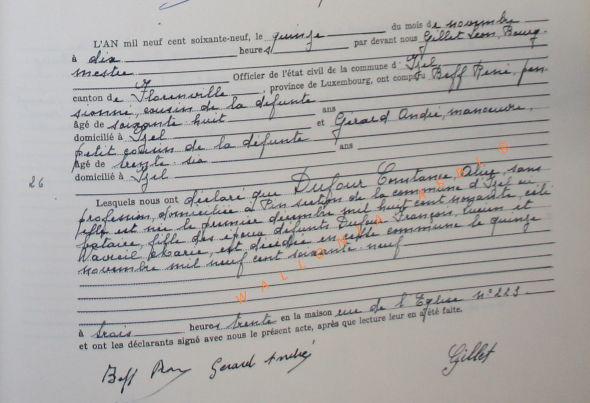 L'AN mil neuf cent soixante-neuf, le quinze du mois de novembre
à dix heures par devant nous Gillet Léon, Bourg-
mestre Officier de l'état civil de la commune d'Izel
canton de Florenville, province de Luxembourg, ont comparu Beff René, pen-
sionné, cousin de la défunte
âgé de soixante-huit ans
domicilié à Izel et Gérard André, manœuvre,
petit cousin de la défunte
âgé de trente-six ans
domicilié à Izel
26
Lesquels nous ont déclaré que Dufour Constance, Alice, sans
profession, domiciliée à Pin section de la commune d'Izel où
elle est née le premier décembre mil huit cent nonante, céli-
bataire, fille des époux défunts Dufour François, Lucien et
Marie, est décédée en cette commune le quinze
novembre mil neuf cent soixante-neuf
à trois heures trente en la maison rue de l'Eglise n° 223
et ont les déclarants signé avec nous le présent acte, après que lecture leur en a été faite.
Beff Gérard André Gillet
WALLONIA